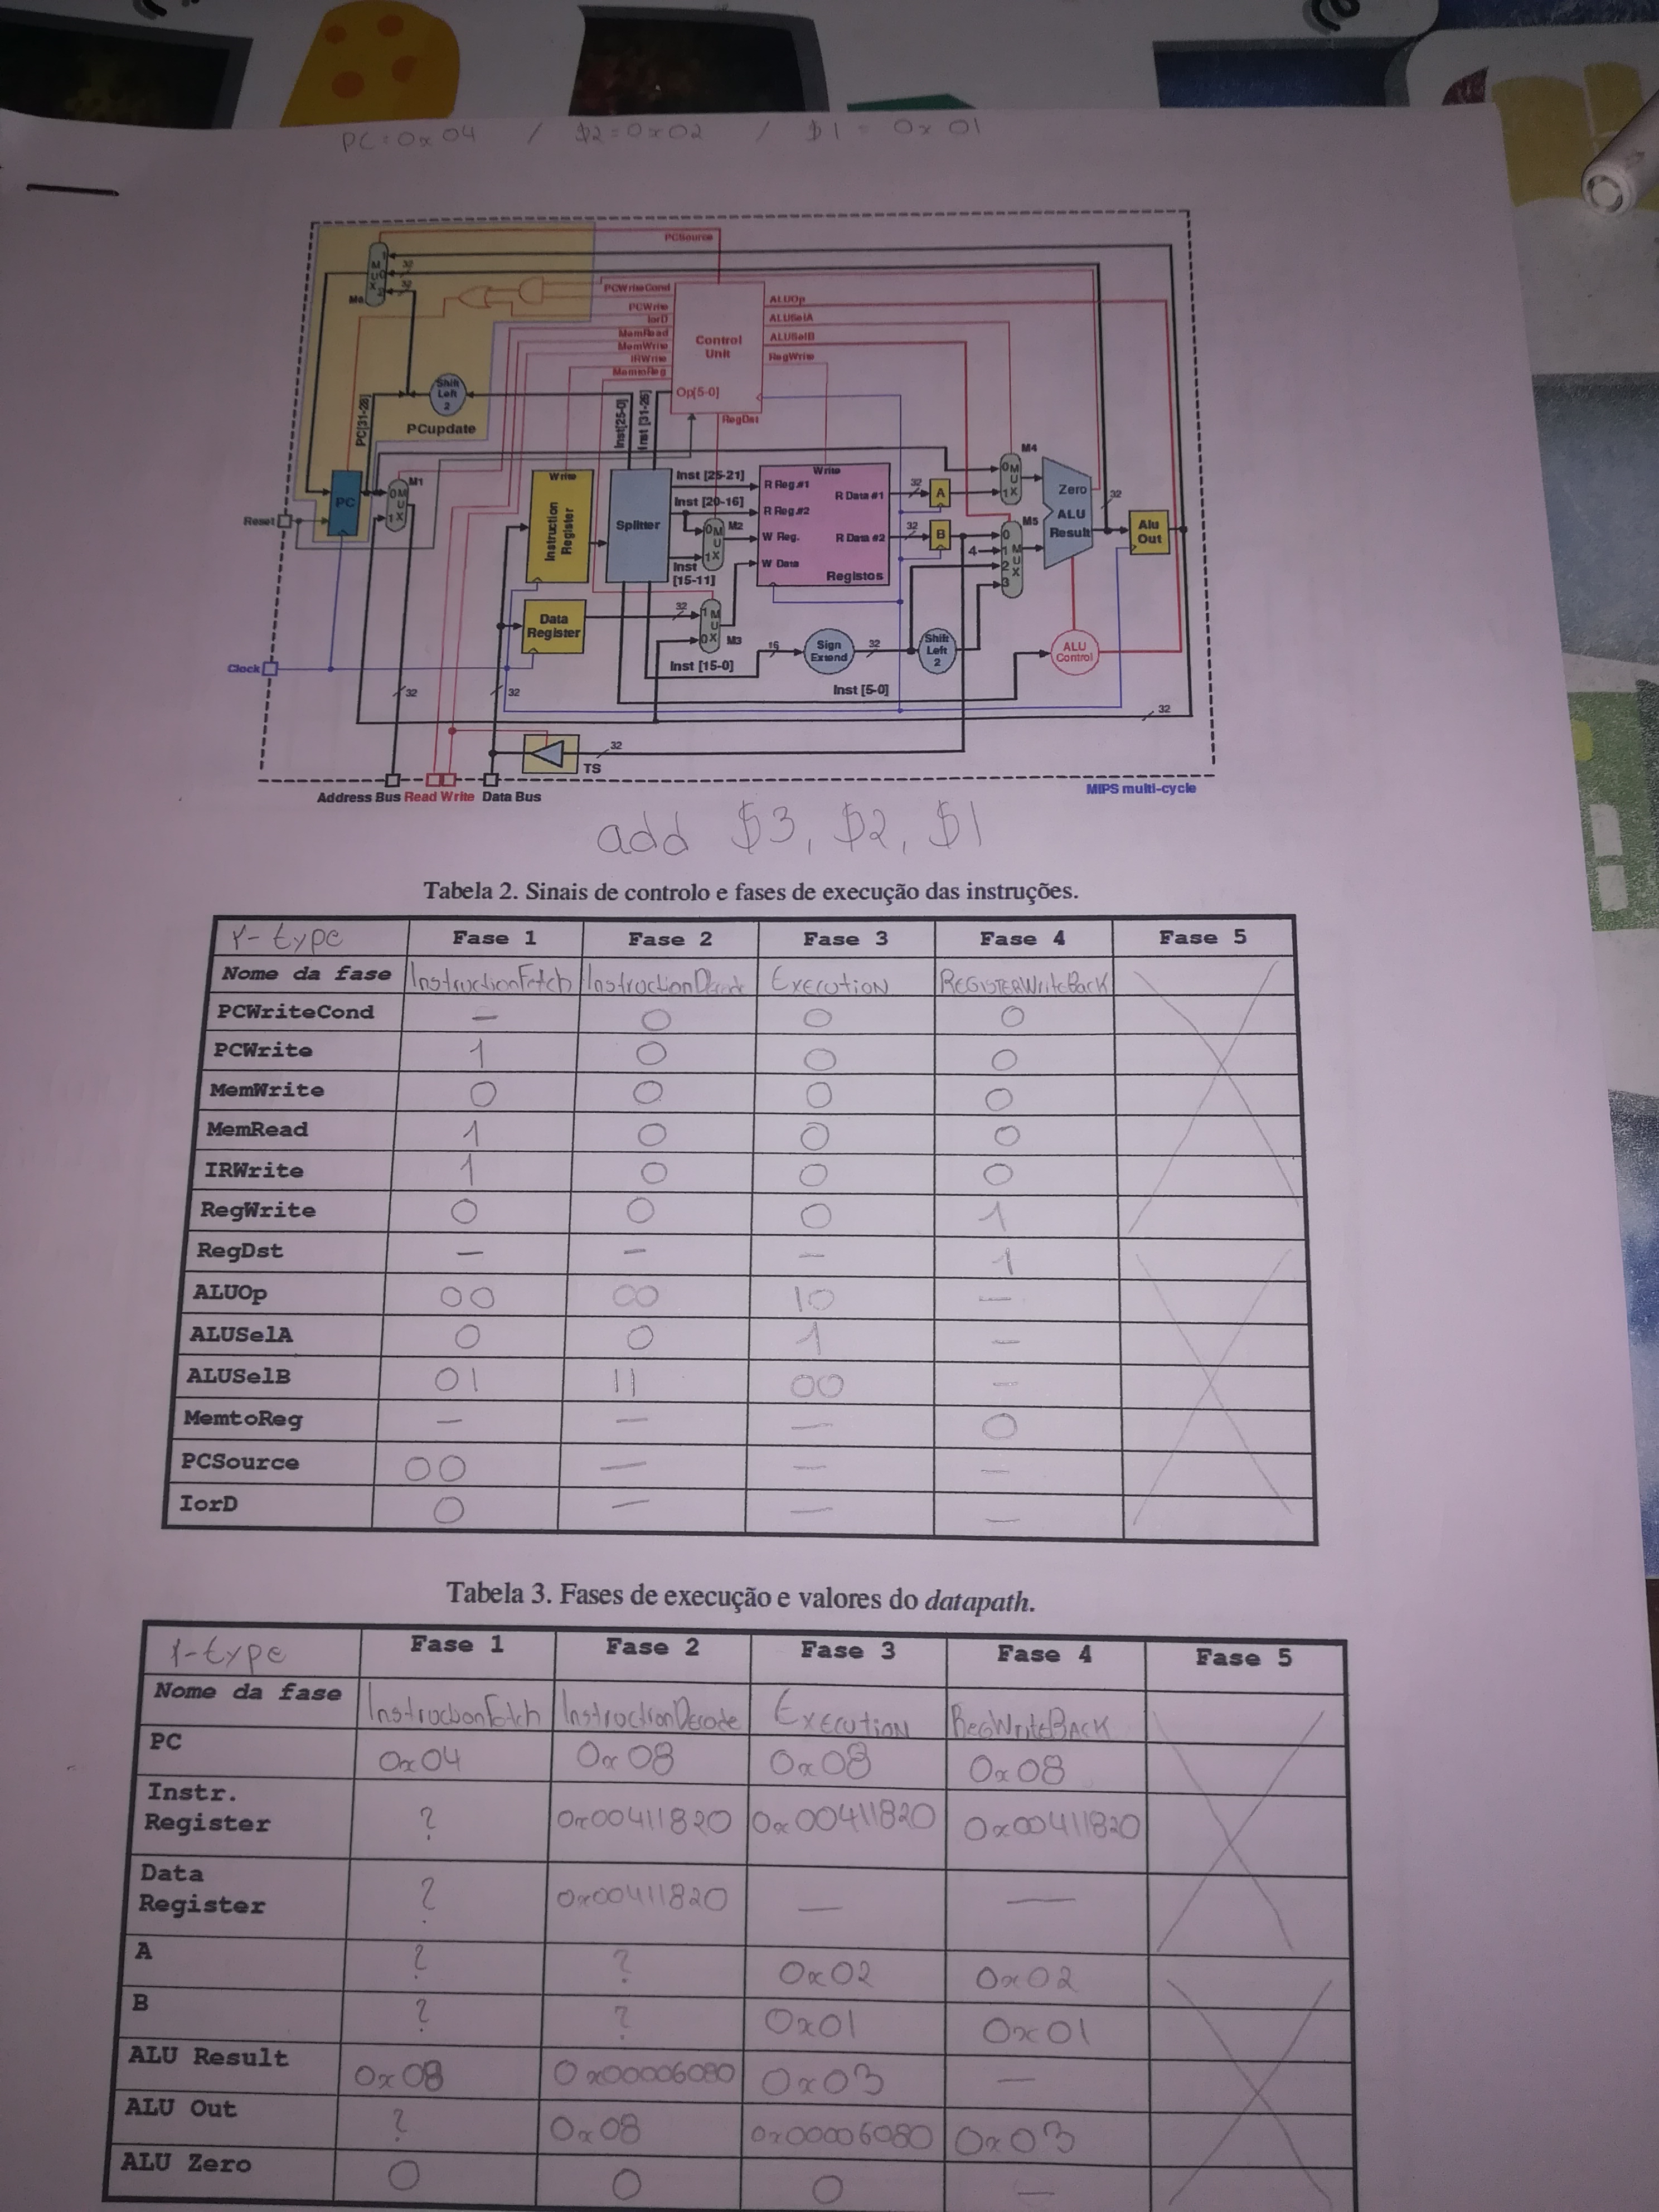 PC=0x04 / $2=0x02 / $1 = 0x01
PCSource
1
MUX
0
2
32
32
M6
PCWriteCond
PCWrite
IorD
MemRead
MemWrite
IRWrite
MemtoReg
Control Unit
Op[5-0]
ALUOp
ALUSelA
ALUSelB
RegWrite
RegDst
Shift Left 2
PCupdate
PC[31-28]
Inst[25-0]
Inst [31-26]
PC
0 MUX 1
M1
Reset
Write
Instruction Register
Splitter
Inst [25-21]
Inst [20-16]
Inst [15-11]
0 MUX 1
M2
Write
R Reg.#1
R Reg.#2
W Reg.
W Data
R Data #1
R Data #2
Registos
32
32
A
B
M4
0 MUX 1
M5
4
0 1 MUX 2 3
Zero
ALU
Result
32
Alu Out
Data Register
32
1 MUX 0
M3
Inst [15-0]
16
Sign Extend
32
Shift Left 2
ALU Control
Inst [5-0]
Clock
32
32
32
32
TS
Address Bus Read Write Data Bus
MIPS multi-cycle
add $3, $2, $1
Tabela 2. Sinais de controlo e fases de execução das instruções.
r-type Fase 1 Fase 2 Fase 3 Fase 4 Fase 5
Nome da fase InstructionFetch InstructionDecode Execution REGISTERWriteBack
PCWriteCond — 0 0 0
PCWrite 1 0 0 0
MemWrite 0 0 0 0
MemRead 1 0 0 0
IRWrite 1 0 0 0
RegWrite 0 0 0 1
RegDst — — — 1
ALUOp 00 00 10 —
ALUSelA 0 0 1 —
ALUSelB 01 11 00 —
MemtoReg — — — 0
PCSource 00 — — —
IorD 0 — — —
Tabela 3. Fases de execução e valores do datapath.
r-type Fase 1 Fase 2 Fase 3 Fase 4 Fase 5
Nome da fase InstructionFetch InstructionDecode Execution RegWriteBack
PC 0x04 0x08 0x08 0x08
Instr. Register ? 0x00411820 0x00411820 0x00411820
Data Register ? 0x00411820 — —
A ? ? 0x02 0x02
B ? ? 0x01 0x01
ALU Result 0x08 0x00006080 0x03 —
ALU Out ? 0x08 0x00006080 0x03
ALU Zero 0 0 0 —